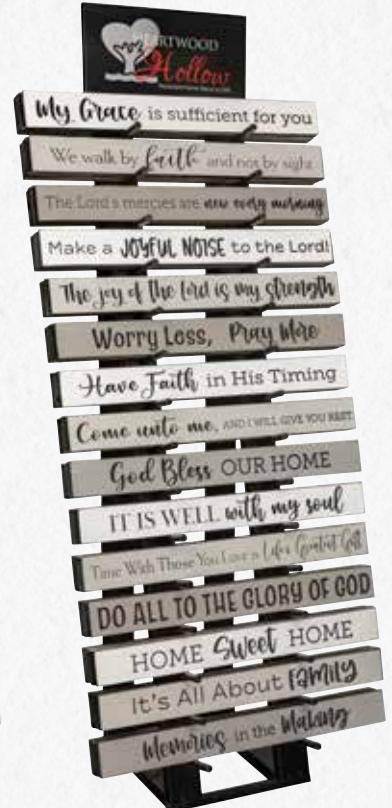 ARTWOOD
Hollow
My Grace is sufficient for you
We walk by faith and not by sight
The Lord's mercies are new every morning
Make a JOYFUL NOISE to the Lord!
The joy of the lord is my strength
Worry Less, Pray More
Have Faith in His Timing
Come unto me, AND I WILL GIVE YOU REST
God Bless OUR HOME
IT IS WELL with my soul
Time With Those You Love is Life's Greatest Gift
DO ALL TO THE GLORY OF GOD
HOME Sweet HOME
It's All About Family
Memories in the Making